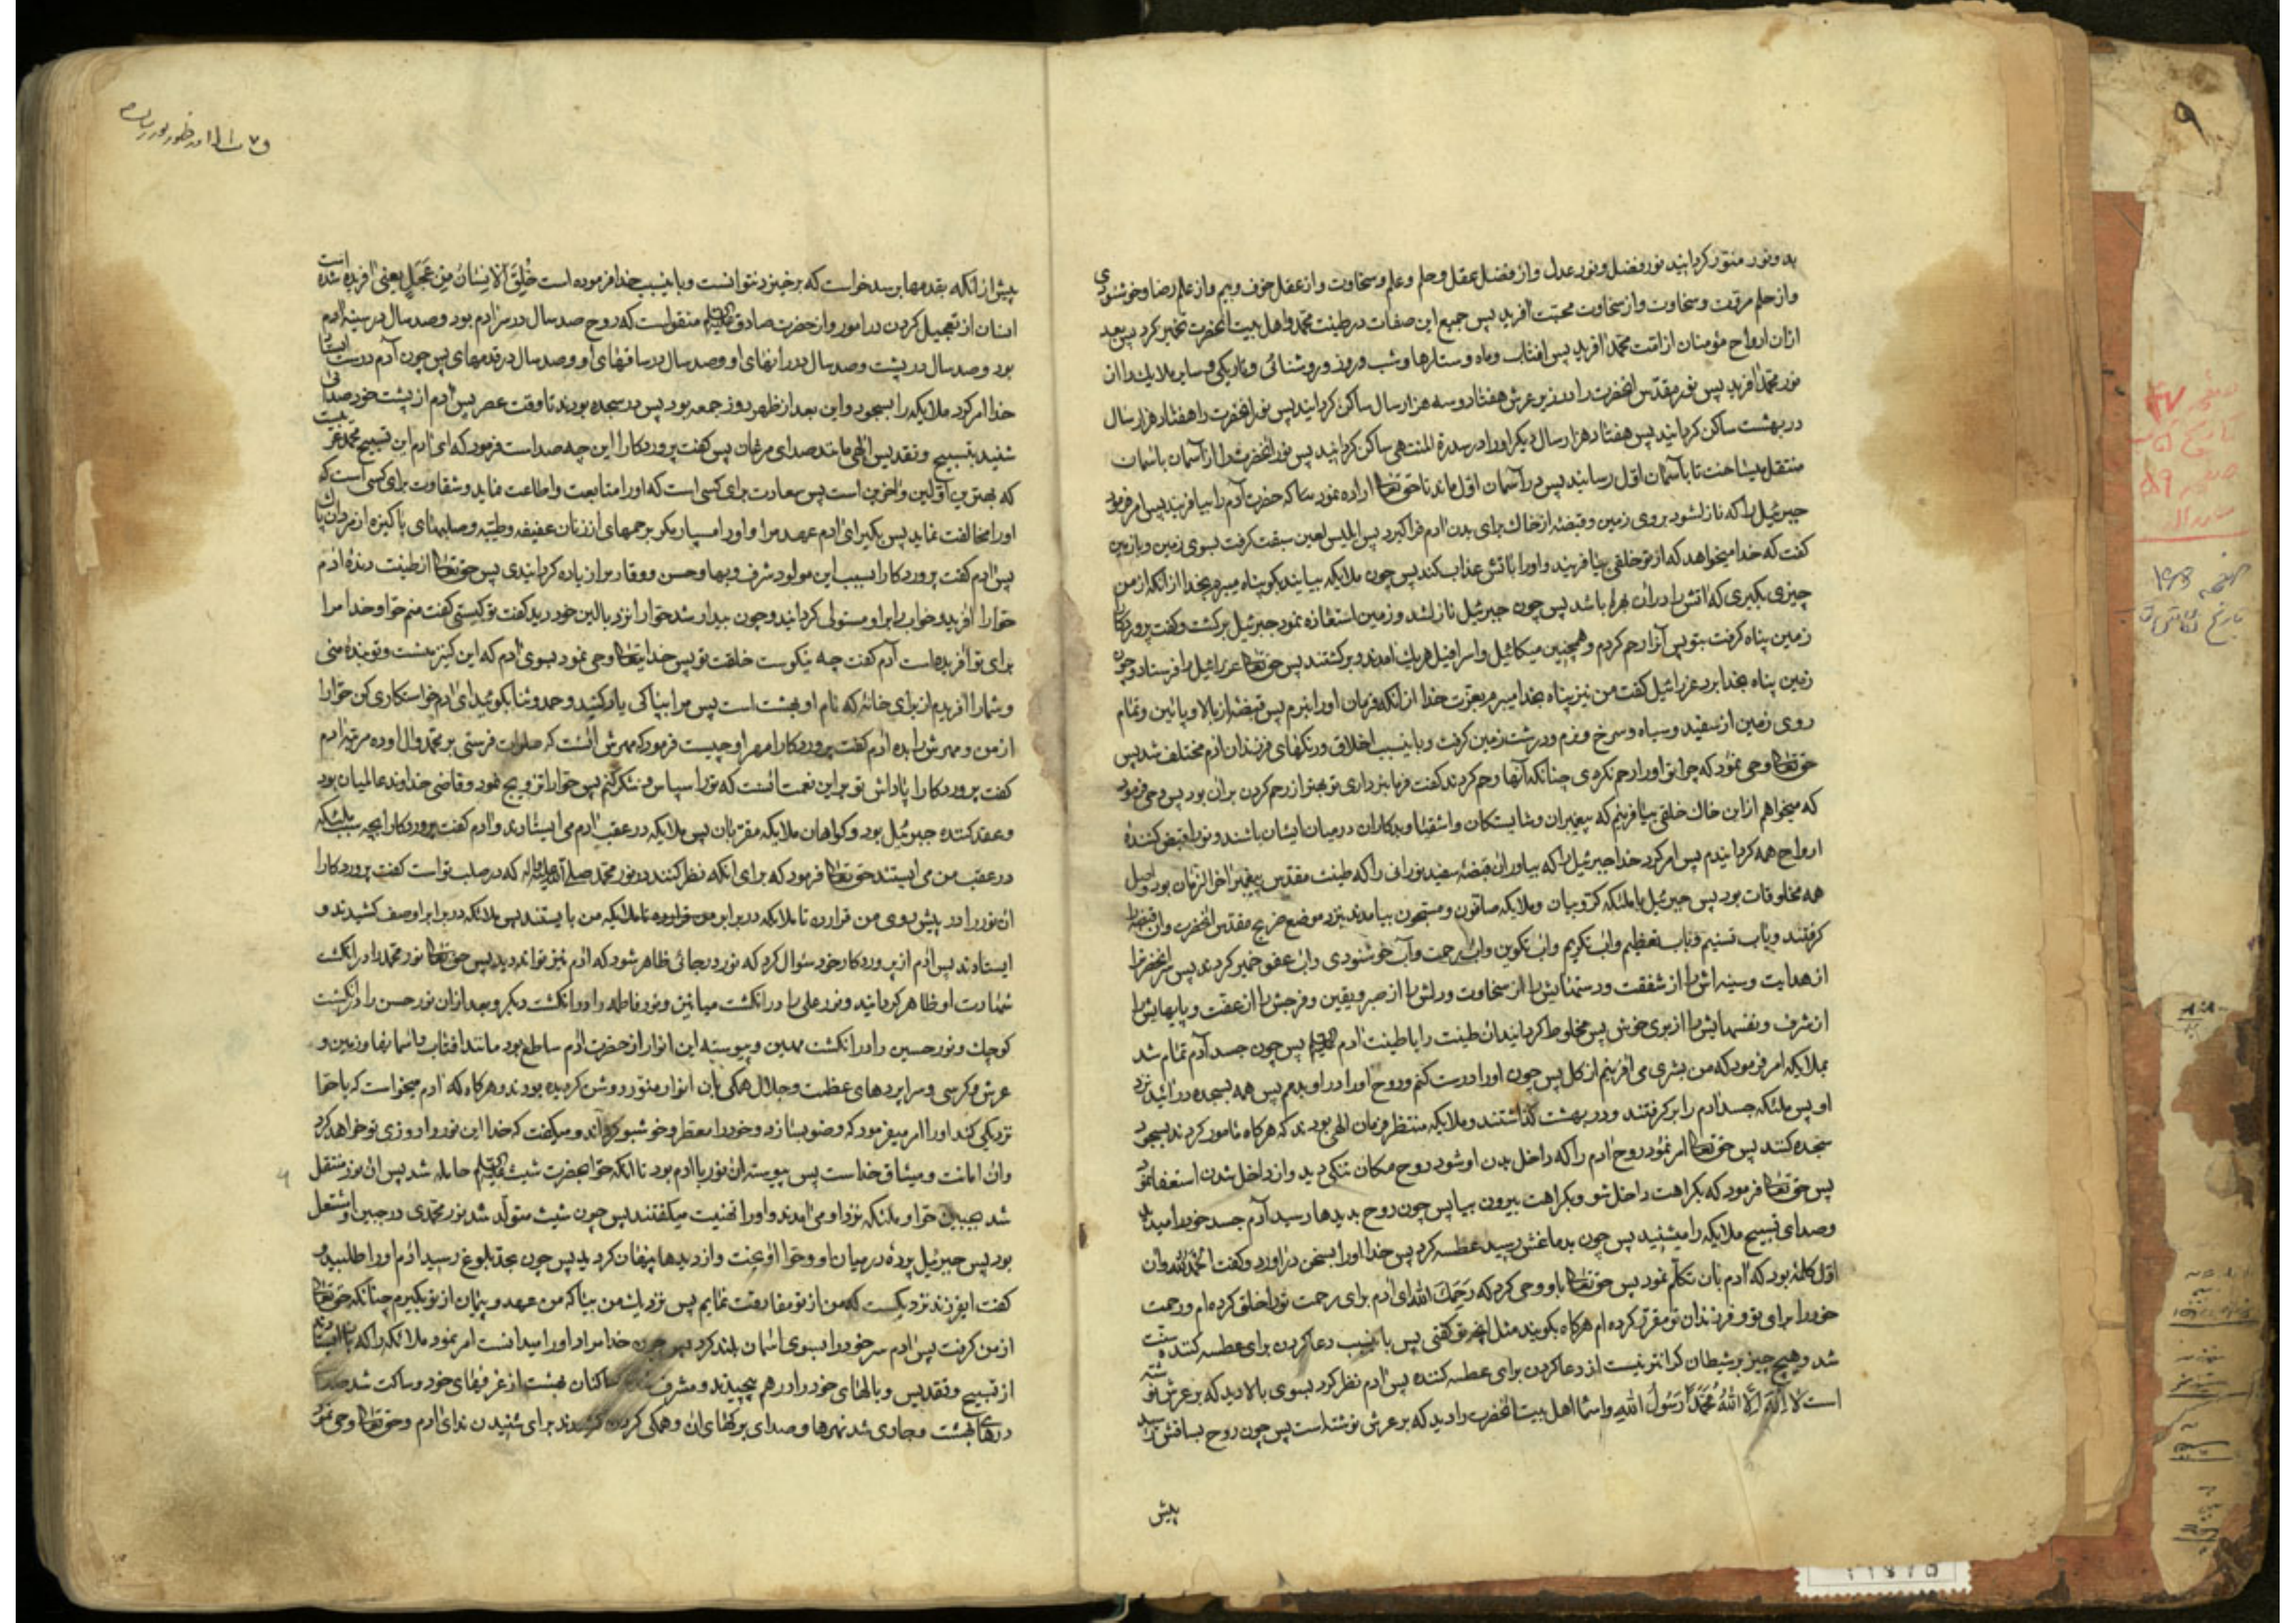 بد و نور منور کردانید نور فضل و نور عدل و از فضل عقل و حلم و علم و سخاوت و از عقل خوف و بیم و از علم رضا و خوشنودی
و از حلم مروت و سخاوت و از سخاوت محبت آفرید پس جمیع این صفات در طینت محمد و اهل بیت آنحضرت تخمیر کرد پس بعد
ازان ارواح مؤمنان از امت محمد آفرید پس افتاب و ماه و ستارها و شب و روز و روشنائی و تاریکی و سایر ملایک را از
نور محمد آفرید پس نور مقدس آنحضرت را در زیر عرش هفتاد و سه هزار سال ساکن کردانید پس نور آنحضرت را هفتاد هزار سال
در بهشت ساکن کردانید پس هفتاد هزار سال دیکر او را در سدرة المنتهی ساکن کردانید پس نور آنحضرت را از آسمان باسمان
منتقل میساخت تا باسمان اول رسانید پس در آسمان اول ماند تا حق تعالی اراده نمود که حضرت آدم را بیافریند پس امر فرمود
جبرئیل را که نازل شود بروی زمین و قبضهٔ از خاک برای بدن آدم فراکیرد پس ابلیس لعین سبقت کرفت بسوی زمین و با زمین
کفت که خدا میخواهد که از تو خلقی بیافریند و او را باتش عذاب کند پس چون ملایکه بیایند بکو پناه میبرم بخدا از آنکه از من
چیزی بکیری که آتش را در آن بهره باشد پس چون جبرئیل نازل شد و زمین استعاذه نمود جبرئیل برکشت و کفت پروردکارا
زمین پناه کرفت بتو پس آنرا رحم کردم و همچنین میکائیل و اسرافیل هریک آمدند و برکشتند پس حق تعالی عزرائیل را فرستاد و چون
زمین پناه بخدا برد عزرائیل کفت من نیز پناه بخدا میبرم بعزت خدا از آنکه فرمان او را نبرم پس قبضهٔ از بالا و پائین و تمام
روی زمین از سفید و سیاه و سرخ و نرم و درشت زمین کرفت و باینسبب اخلاق و رنکهای فرزندان آدم مختلف شد پس
حق تعالی وحی نمود که چرا تو او را رحم نکردی چنانکه آنها رحم کردند کفت فرمانبرداری تو بهتر از رحم کردن بر آن بود پس وحی فرمود
که میخواهم از این خاک خلقی بیافرینم که پیغمبران و شایستکان و اشقیا و بدکاران در میان ایشان باشند و تو را قبض کنندهٔ
ارواح همه کردانیدم پس امر کرد خدا جبرئیل را که بیاور آن قبضهٔ سفید نورانی را که طینت مقدس پیغمبر آخر الزمان بود و اصل
همه مخلوقات بود پس جبرئیل با ملئکه کروبیان و ملایکه صافون و مسبحون بیامدند نزد موضع ضریح مقدس آنحضرت و آن قبضه را
کرفتند و بآب تسنیم و بآب تعظیم و آب تکریم و آب تکوین و آب رحمت و آب خوشنودی و آب عفو خمیر کردند پس سر آنحضرت را
از هدایت و سینه اش را از شفقت و دستهایش را از سخاوت و دلش را از صبر و یقین و فرجش را از عفت و پایهایش را
از شرف و نفسهایش را از بوی خوش پس مخلوط کردانید آن طینت را با طینت آدم پس چون جسد آدم تمام شد
بملایکه امر فرمود که من بشری می آفرینم از کل پس چون او را درست کنم و روح او را در او بدمم پس همه بسجده درآئید نزد
او پس ملئکه جسد آدم را برکرفتند و در بهشت کذاشتند و ملایکه منتظر فرمان الهی بودند که هرکاه مامور کردند بسجود
سجده کنند پس حق تعالی امر نمود روح آدم را که داخل بدن او شود روح مکان تنکی دید و از داخل شدن استعفا نمود
پس حق تعالی فرمود که بکراهت داخل شو و بکراهت بیرون بیا پس چون روح بدیدها رسید آدم جسد خود را میدید
و صدای تسبیح ملایکه را میشنید پس چون بدماغش رسید عطسه کرد پس خدا او را بسخن درآورد و کفت الحمد لله و آن
اول کلمهٔ بود که آدم بآن تکلم نمود پس حق تعالی باو وحی کرد که رحمک الله ای آدم برای رحمت تو را خلق کرده ام و رحمت
خود را برای تو و فرزندان تو مقرر کرده ام هرکاه بکویند مثل آنچه تو کفتی پس باینسبب دعا کردن برای عطسه کننده سنت
شد و هیچ چیز بر شیطان کرانتر نیست از دعا کردن برای عطسه کننده پس آدم نظر کرد بسوی بالا دید که بر عرش نوشته
است لا اله الا الله محمد رسول الله و اسماء اهل بیت آنحضرت را دید که بر عرش نوشته است پس چون روح بساقش رسید
پیش
پیش از آنکه بقدمها برسد خواست که برخیزد نتوانست و باینسبب خدا فرموده است خلق الانسان من عجل یعنی آفریده شده است
انسان از تعجیل کردن در امور و از حضرت صادق منقولست که روح صد سال در سر آدم بود و صد سال در سینه آدم
بود و صد سال در پشت و صد سال در رانهای او و صد سال در ساقهای او و صد سال در قدمهای پس چون آدم درست ایستاد
خدا امر کرد ملایکه را بسجود و این بعد از ظهر روز جمعه بود پس در سجده بودند تا وقت عصر پس آدم از پشت خود صدائی
شنید بتسبیح و تقدیس الهی مانند صدای مرغان پس کفت پروردکارا این چه صداست فرمود که ای آدم این تسبیح محمد عربیست
که بهترین اولین و آخرین است پس سعادت برای کسی است که او را متابعت و اطاعت نماید و شقاوت برای کسی است که
او را مخالفت نماید پس بکیر ای آدم عهد مرا و او را مسپار مکر برحمهای از زنان عفیفه و طیبه و صلبهای پاکیزه از مردان پاک
پس آدم کفت پروردکارا بسبب این مولود شرف و بها و حسن و وقار مرا زیاده کردانیدی پس حق تعالی از طینت دندهٔ آدم
حوا را آفرید و خواب را بر او مستولی کردانید و چون بیدار شد حوا را نزد بالین خود دید کفت تو کیستی کفت منم حوا و خدا مرا
برای تو آفریده است آدم کفت چه نیکوست خلقت تو پس خدایتعالی وحی نمود بسوی آدم که این کنیز منست و تو بندهٔ منی
و شما را آفریدم از برای خانهٔ که نام او بهشت است پس مرا بپاکی یاد کنید و حمد و ثنا بکوئید ای آدم خواستکاری کن حوا را
از من و مهرش را بده آدم کفت پروردکارا مهر او چیست فرمود که مهرش آنست که صلوات فرستی بر محمد و آل او ده مرتبه آدم
کفت پروردکارا پاداش تو بر این نعمت آنست که تو را سپاس و شکر کنم پس حوا را تزویج نمود و قاضی خداوند عالمیان بود
و عقد کننده جبرئیل بود و کواهان ملایکه مقربان پس ملایکه در عقب آدم می ایستادند و آدم کفت پروردکارا بچه سبب ملئکه
در عقب من می ایستند حق تعالی فرمود که برای آنکه نظر کنند در نور محمد صلی الله علیه و آله که در صلب تو است کفت پروردکارا
آن نور را در پیش روی من قرار ده تا ملایکه در برابر من بایستند پس ملائکه در برابر او صف کشیدند و
ایستادند پس آدم از پروردکار خود سئوال کرد که نور در جائی ظاهر شود که آدم نیز تواند دید پس حق تعالی نور محمد را در انکشت
شهادت او ظاهر کردانید و نور علی را در انکشت میانین و نور فاطمه را در انکشت دیکر و بعد ازان نور حسن را در انکشت
کوچک و نور حسین را در انکشت مهین و پیوسته این انوار از حضرت آدم ساطع بود مانند افتاب و آسمانها و زمین و
عرش و کرسی و سراپردهای عظمت و جلال همکی بآن انوار منور و روشن کردیده بودند و هرکاه که آدم میخواست که با حوا
نزدیکی کند او را امر میفرمود که وضو بسازد و خود را معطر و خوشبو کرداند و میکفت که خدا این نور را روزی تو خواهد کرد
و آن امانت و میثاق خداست پس پیوسته آن نور با آدم بود تا آنکه حوا بحضرت شیث حامله شد پس آن نور منتقل
شد بجبین حوا و ملئکه نزد او می آمدند و او را تهنیت میکفتند پس چون شیث متولد شد نور محمدی در جبین او مشتعل
بود پس جبرئیل پردهٔ در میان او و حوا آویخت و از دیدها پنهان کردید پس چون بحد بلوغ رسید آدم او را طلبید و
کفت ایفرزند نزدیکست که من از تو مفارقت نمایم پس نزدیک من بیا که من عهد و پیمان از تو بکیرم چنانکه حق تعالی
از من کرفت پس آدم سر خود را بسوی آسمان بلند کرد پس چون خدا مراد او را میدانست امر نمود ملائکه را که باز ایستادند
از تسبیح و تقدیس و بالهای خود را در هم پیچیدند و مشرف شدند ساکنان بهشت از غرفهای خود و ساکت شد صدا
درهای بهشت و جاری شد نهرها و صدای برکهای آن و همکی کردن کشیدند برای شنیدن ندای آدم و حق تعالی وحی نمود